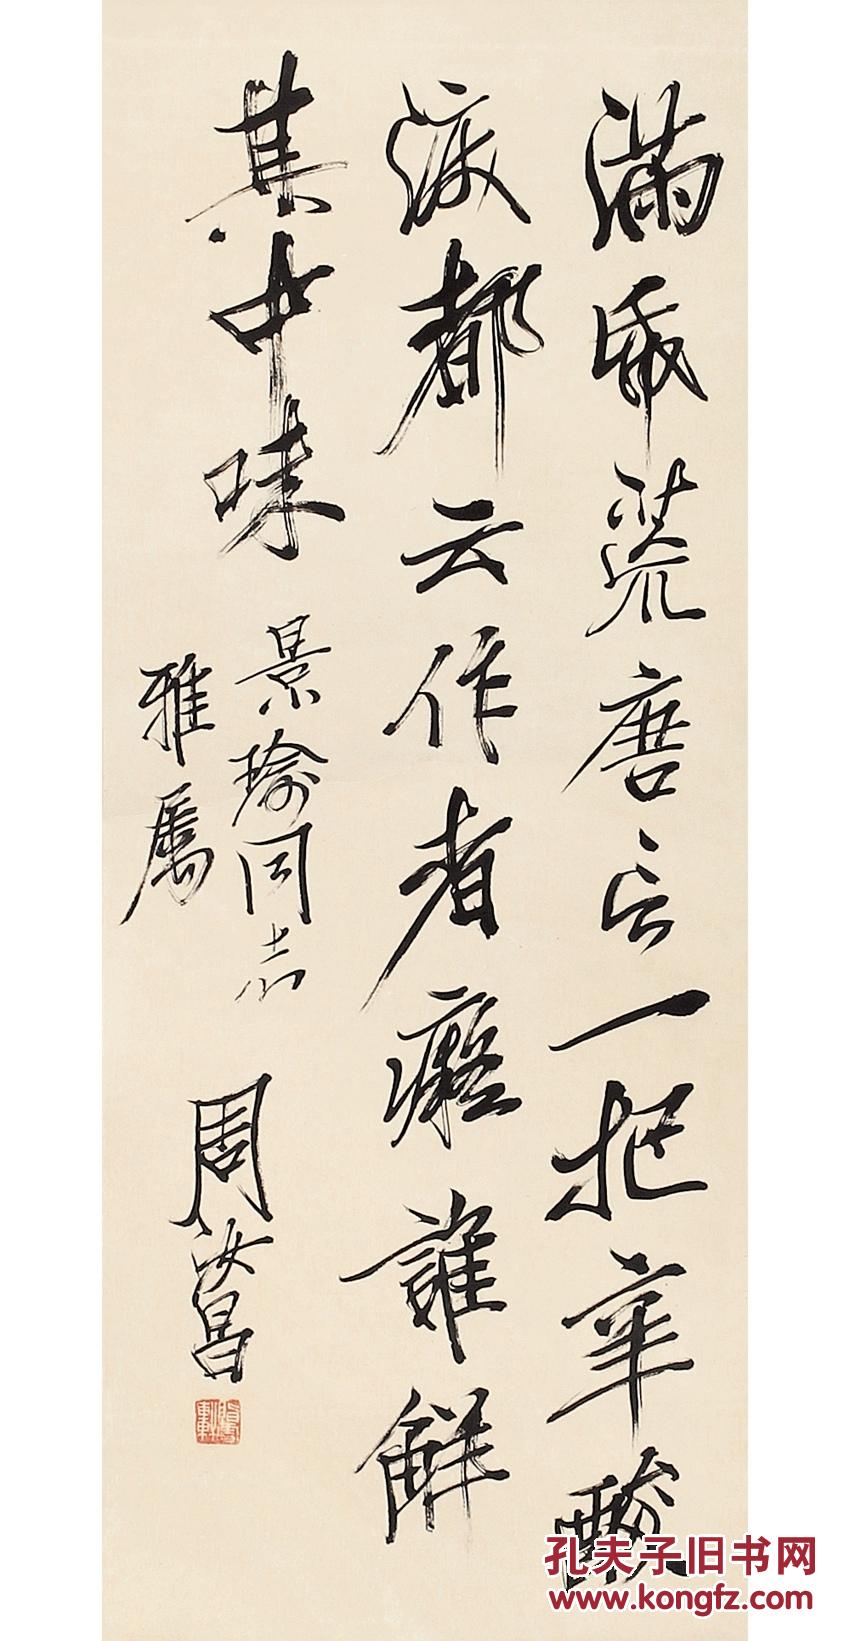 满纸荒唐言一把辛酸
淚都云作者癡誰解
其中味
景瑜同志
雅属
周汝昌
孔夫子旧书网
www.kongfz.com